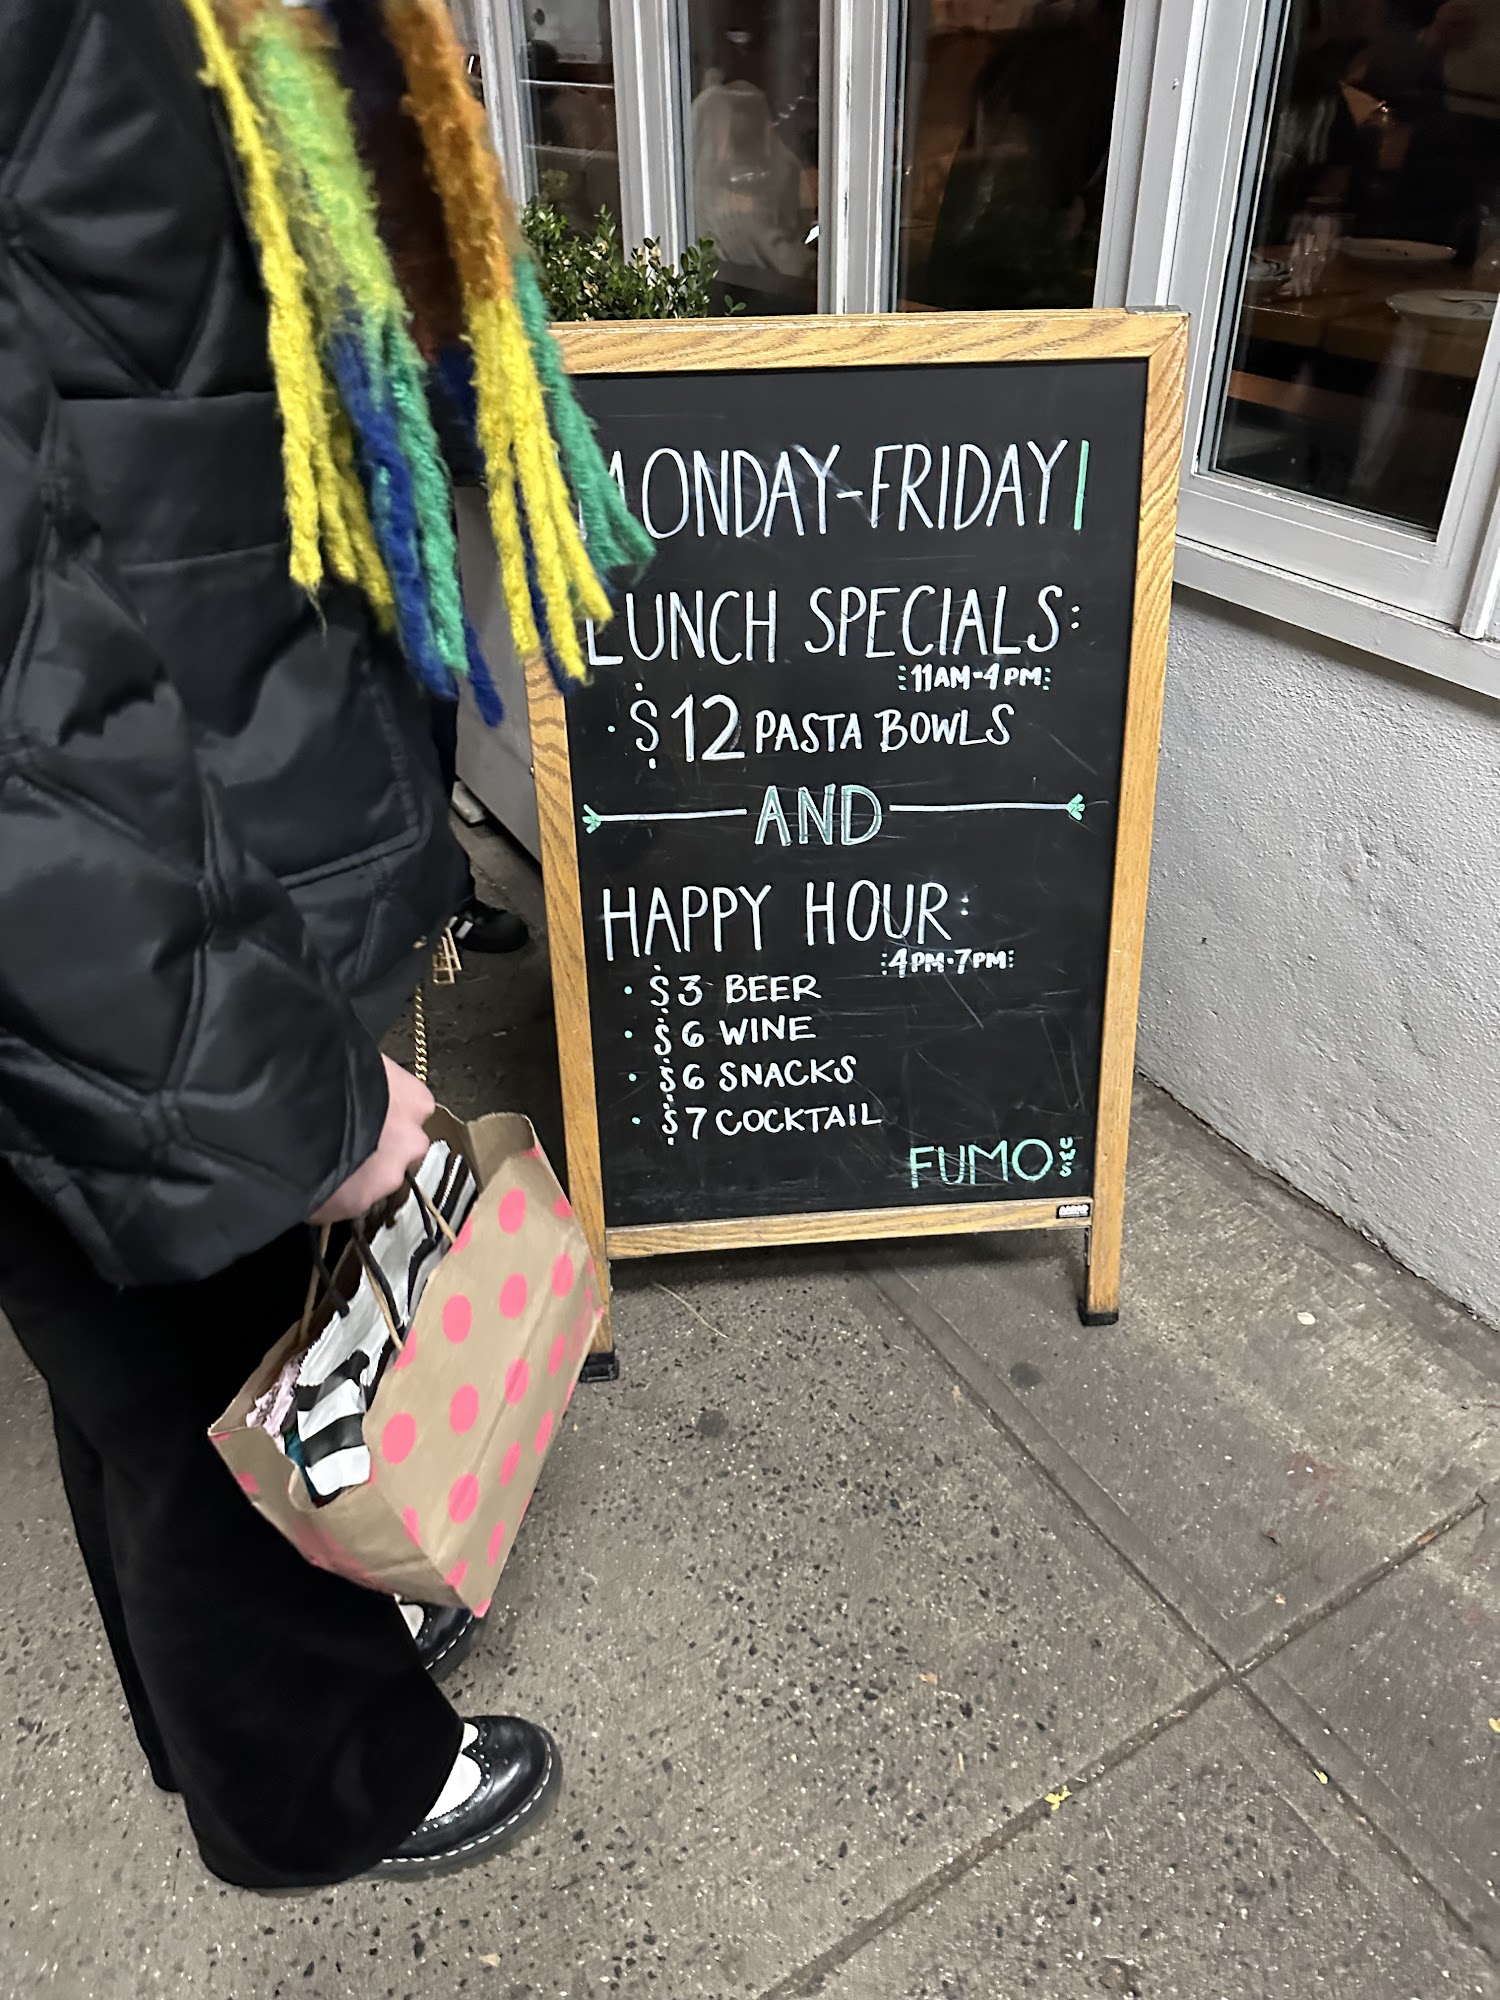 MONDAY-FRIDAY
LUNCH SPECIALS:
11AM-4PM
• $12 PASTA BOWLS
AND
HAPPY HOUR:
4PM-7PM
• $3 BEER
• $6 WINE
• $6 SNACKS
• $7 COCKTAIL
FUMO UWS